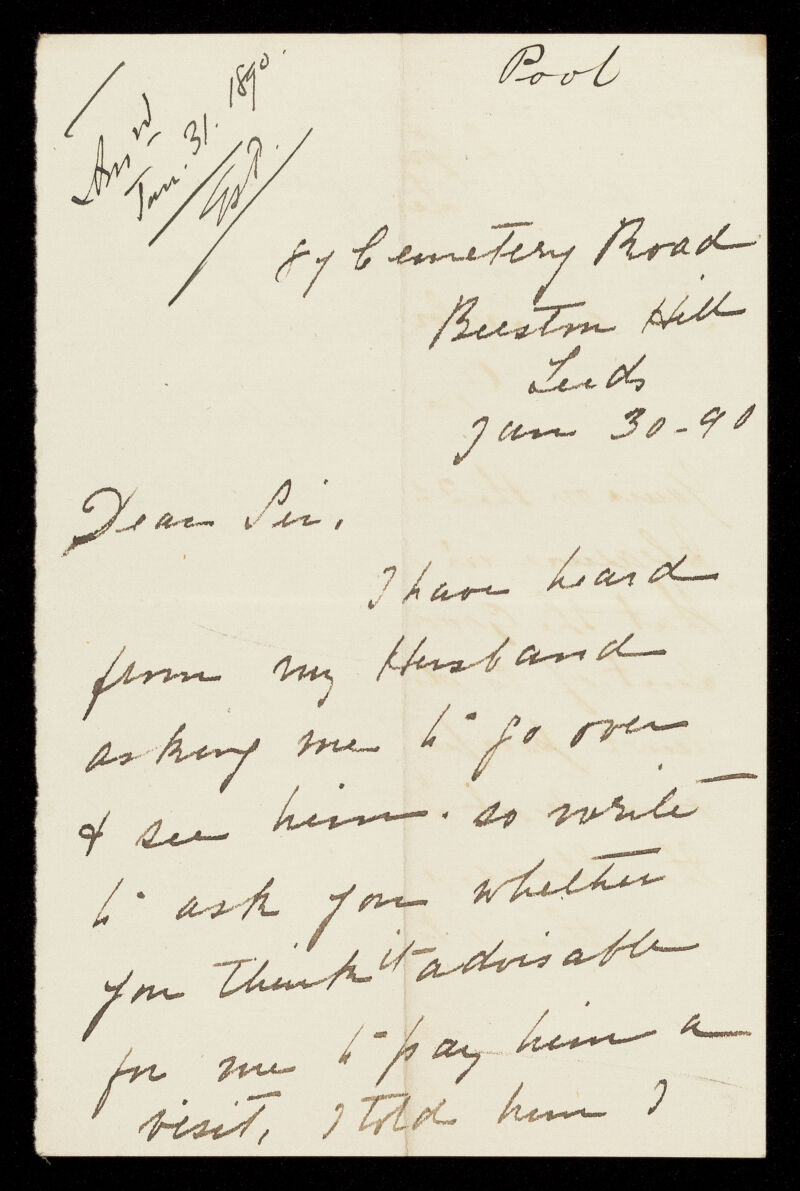 Pool
Ansd
Jan. 31. 1890.
87 Cemetery Road
Beeston Hill
Leeds
Jan 30-90
Dear Sir,
I have heard
from my Husband
asking me to go over
& see him. so write
to ask you whether
you think it advisable
for me to pay him a
visit, I told him I